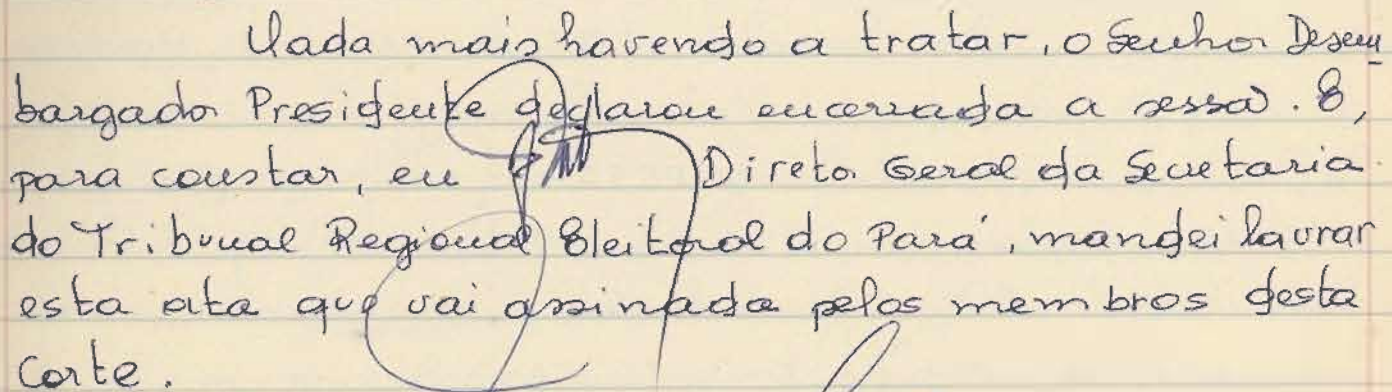 Nada mais havendo a tratar, o Senhor Desem
bargador Presidente declarou encerrada a sessão. E,
para constar, eu Diretor Geral da Secretaria
do Tribunal Regional Eleitoral do Pará, mandei lavrar
esta ata que vai assinada pelos membros desta
Corte.